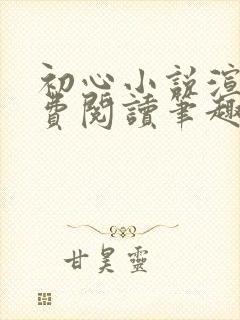 初心小說渲
費閱讀筆趣
甘昊靈